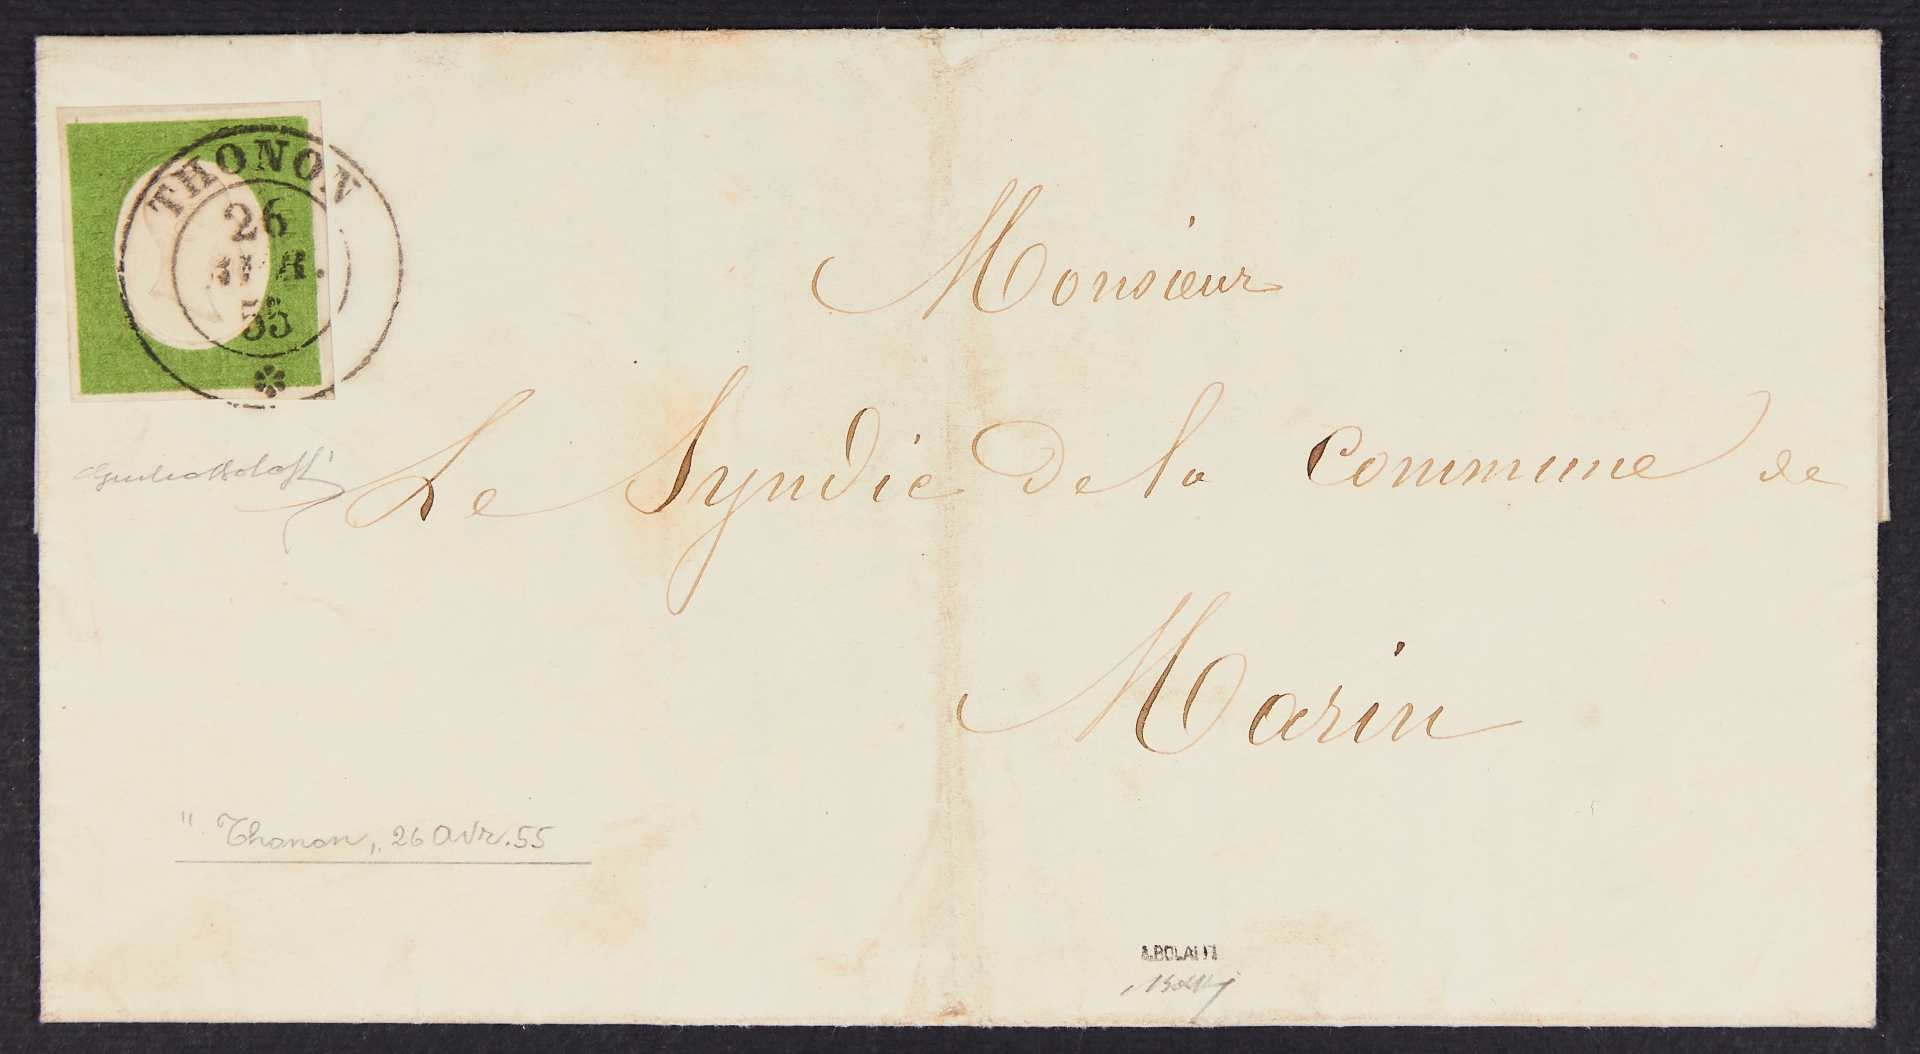 THONON
26
55
Monsieur
Le Syndic de la Commune de
Marin
" Thonon „ 26 Avr. 55
A.BOLAFFI